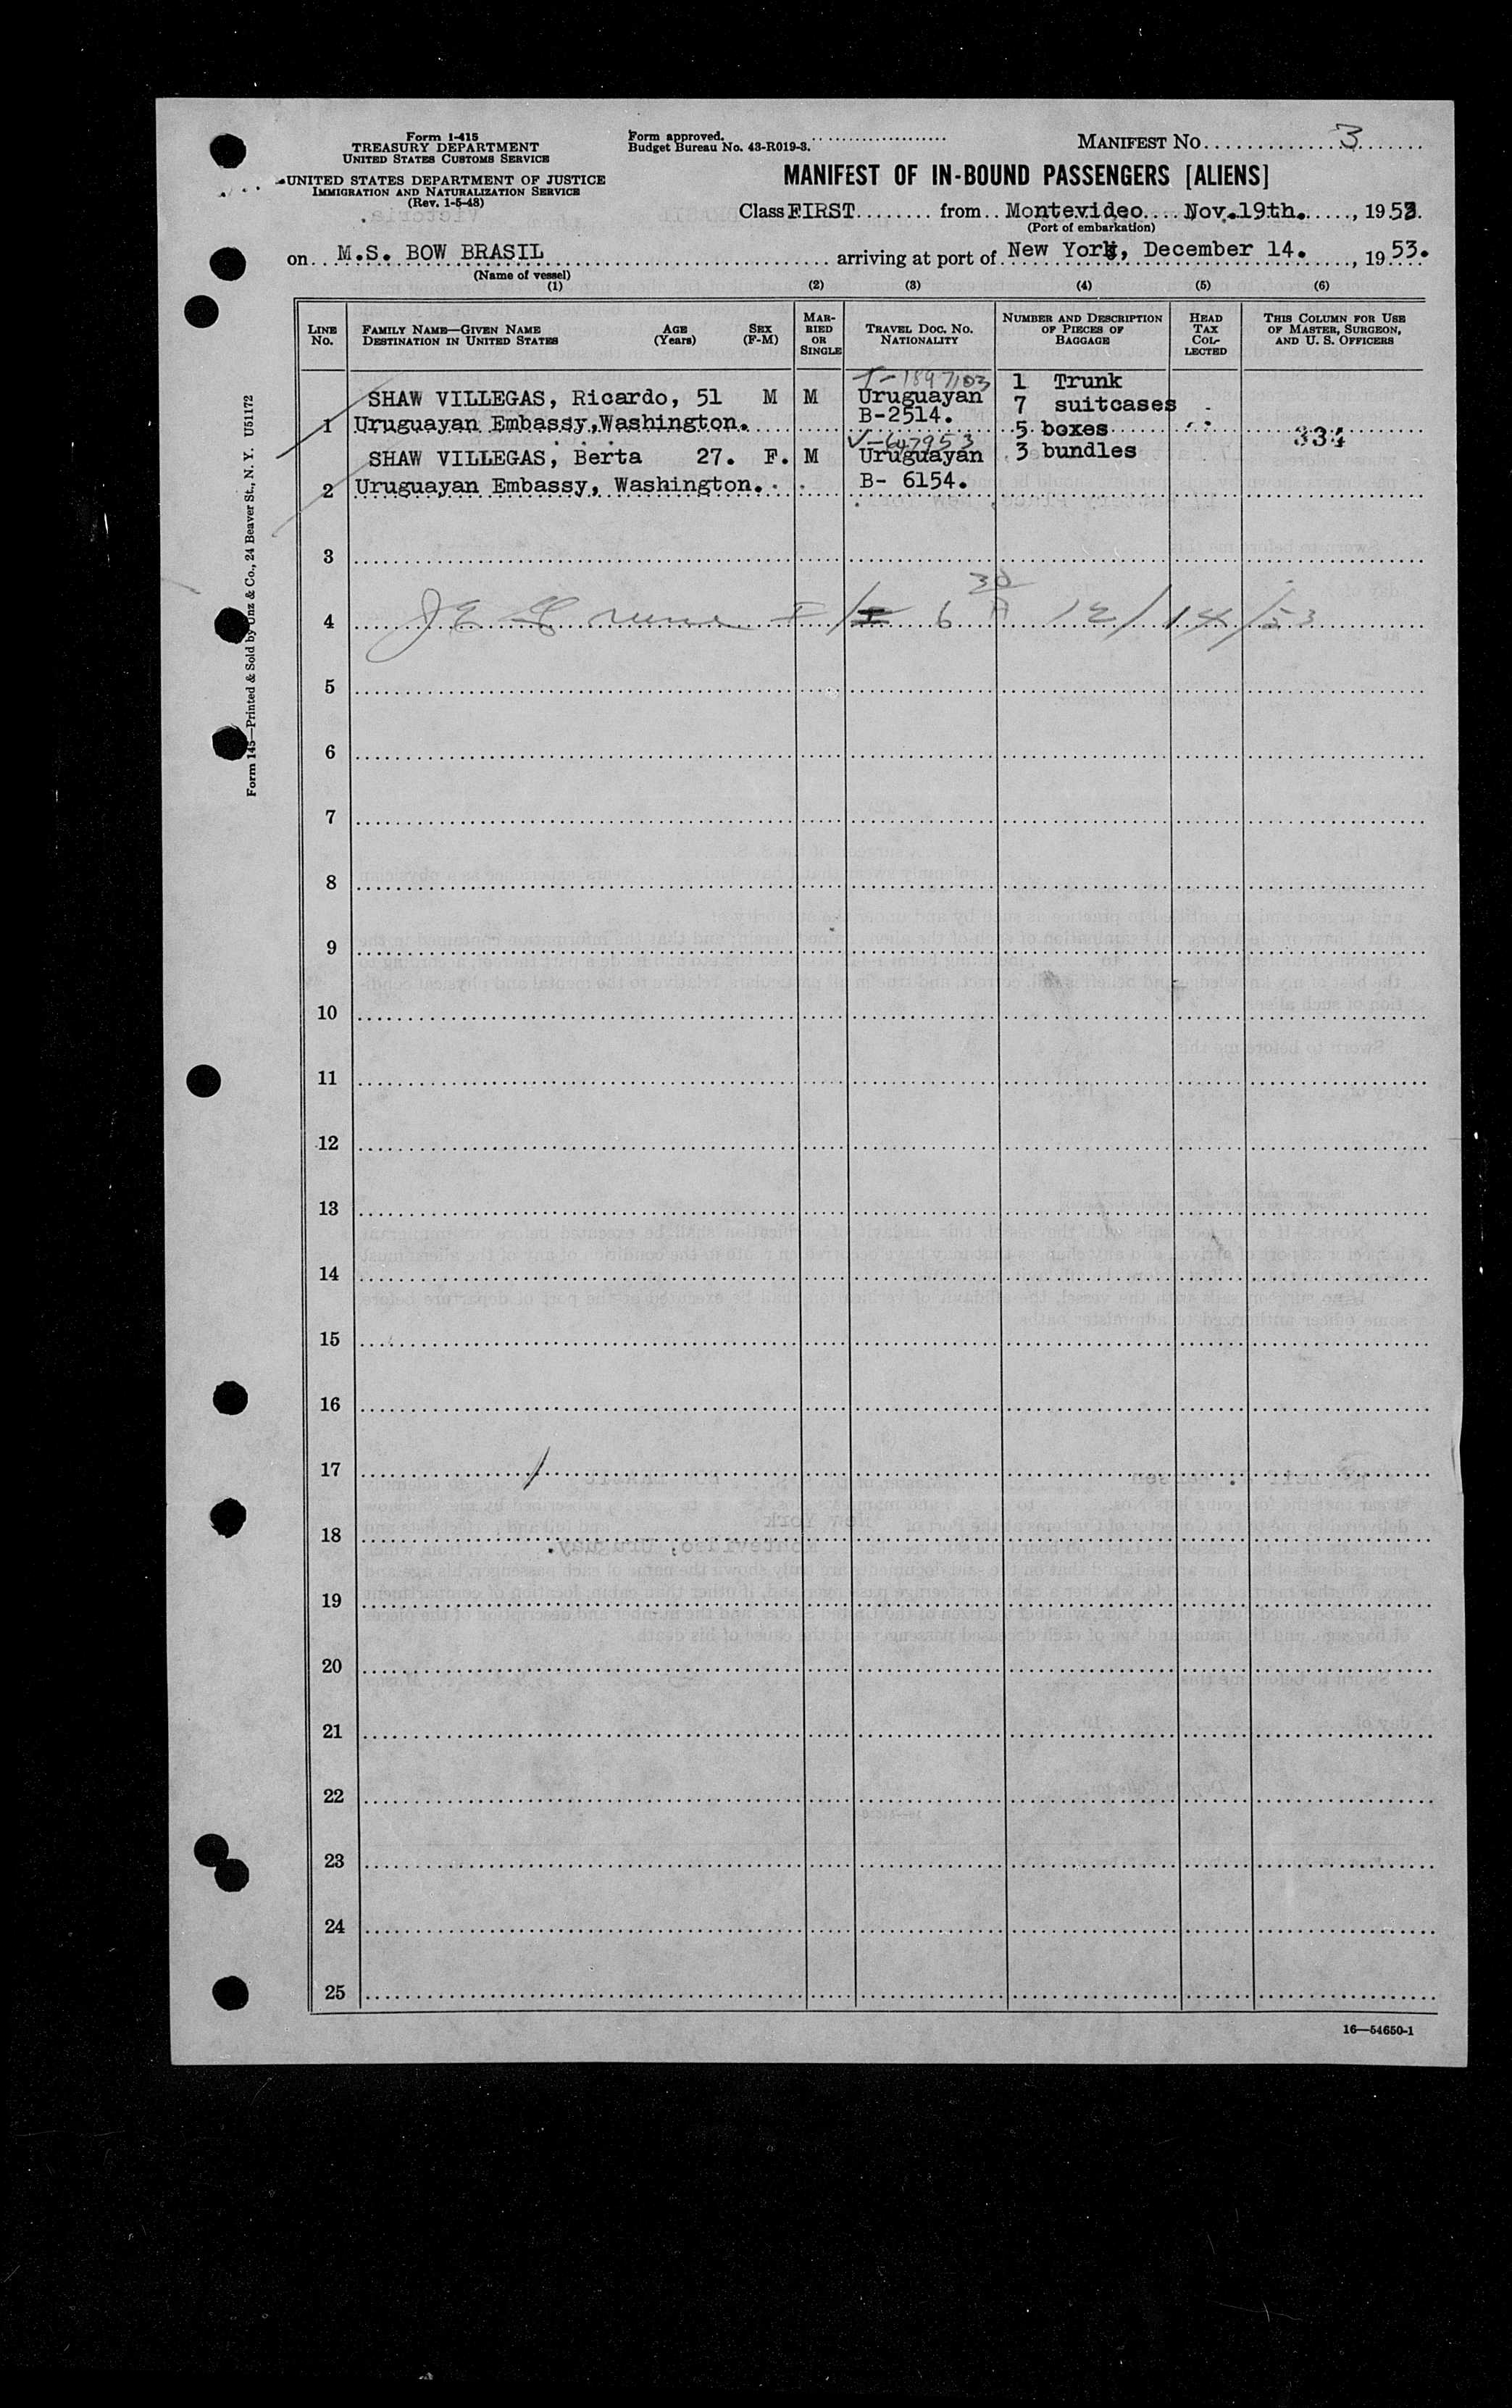 Form I-415
TREASURY DEPARTMENT
UNITED STATES CUSTOMS SERVICE
UNITED STATES DEPARTMENT OF JUSTICE
IMMIGRATION AND NATURALIZATION SERVICE
(Rev. 1-5-48)
Form approved.
Budget Bureau No. 43-R019-3.
MANIFEST NO. 3
MANIFEST OF IN-BOUND PASSENGERS [ALIENS]
Class FIRST from Montevideo Nov.19th., 1953.
(Port of embarkation)
on M.S. BOW BRASIL arriving at port of New York, December 14., 1953.
(Name of vessel)
(1) (2) (3) (4) (5) (6)
LINE NO. FAMILY NAME—GIVEN NAME DESTINATION IN UNITED STATES AGE (Years) SEX (F-M) MARRIED OR SINGLE TRAVEL DOC. NO. NATIONALITY NUMBER AND DESCRIPTION OF PIECES OF BAGGAGE HEAD TAX COLLECTED THIS COLUMN FOR USE OF MASTER, SURGEON, AND U. S. OFFICERS
T-1897103 1 Trunk
SHAW VILLEGAS, Ricardo, 51 M M Uruguayan 7 suitcases
1 Uruguayan Embassy,Washington. B-2514. 5 boxes 334
V-647953
SHAW VILLEGAS, Berta 27. F. M Uruguayan 3 bundles
2 Uruguayan Embassy, Washington. B- 6154.
3
4 12/14/53
5
6
7
8
9
10
11
12
13
14
15
16
17
18
19
20
21
22
23
24
25
16—54650-1
Form 145—Printed & Sold by Unz & Co., 24 Beaver St., N. Y. U51172